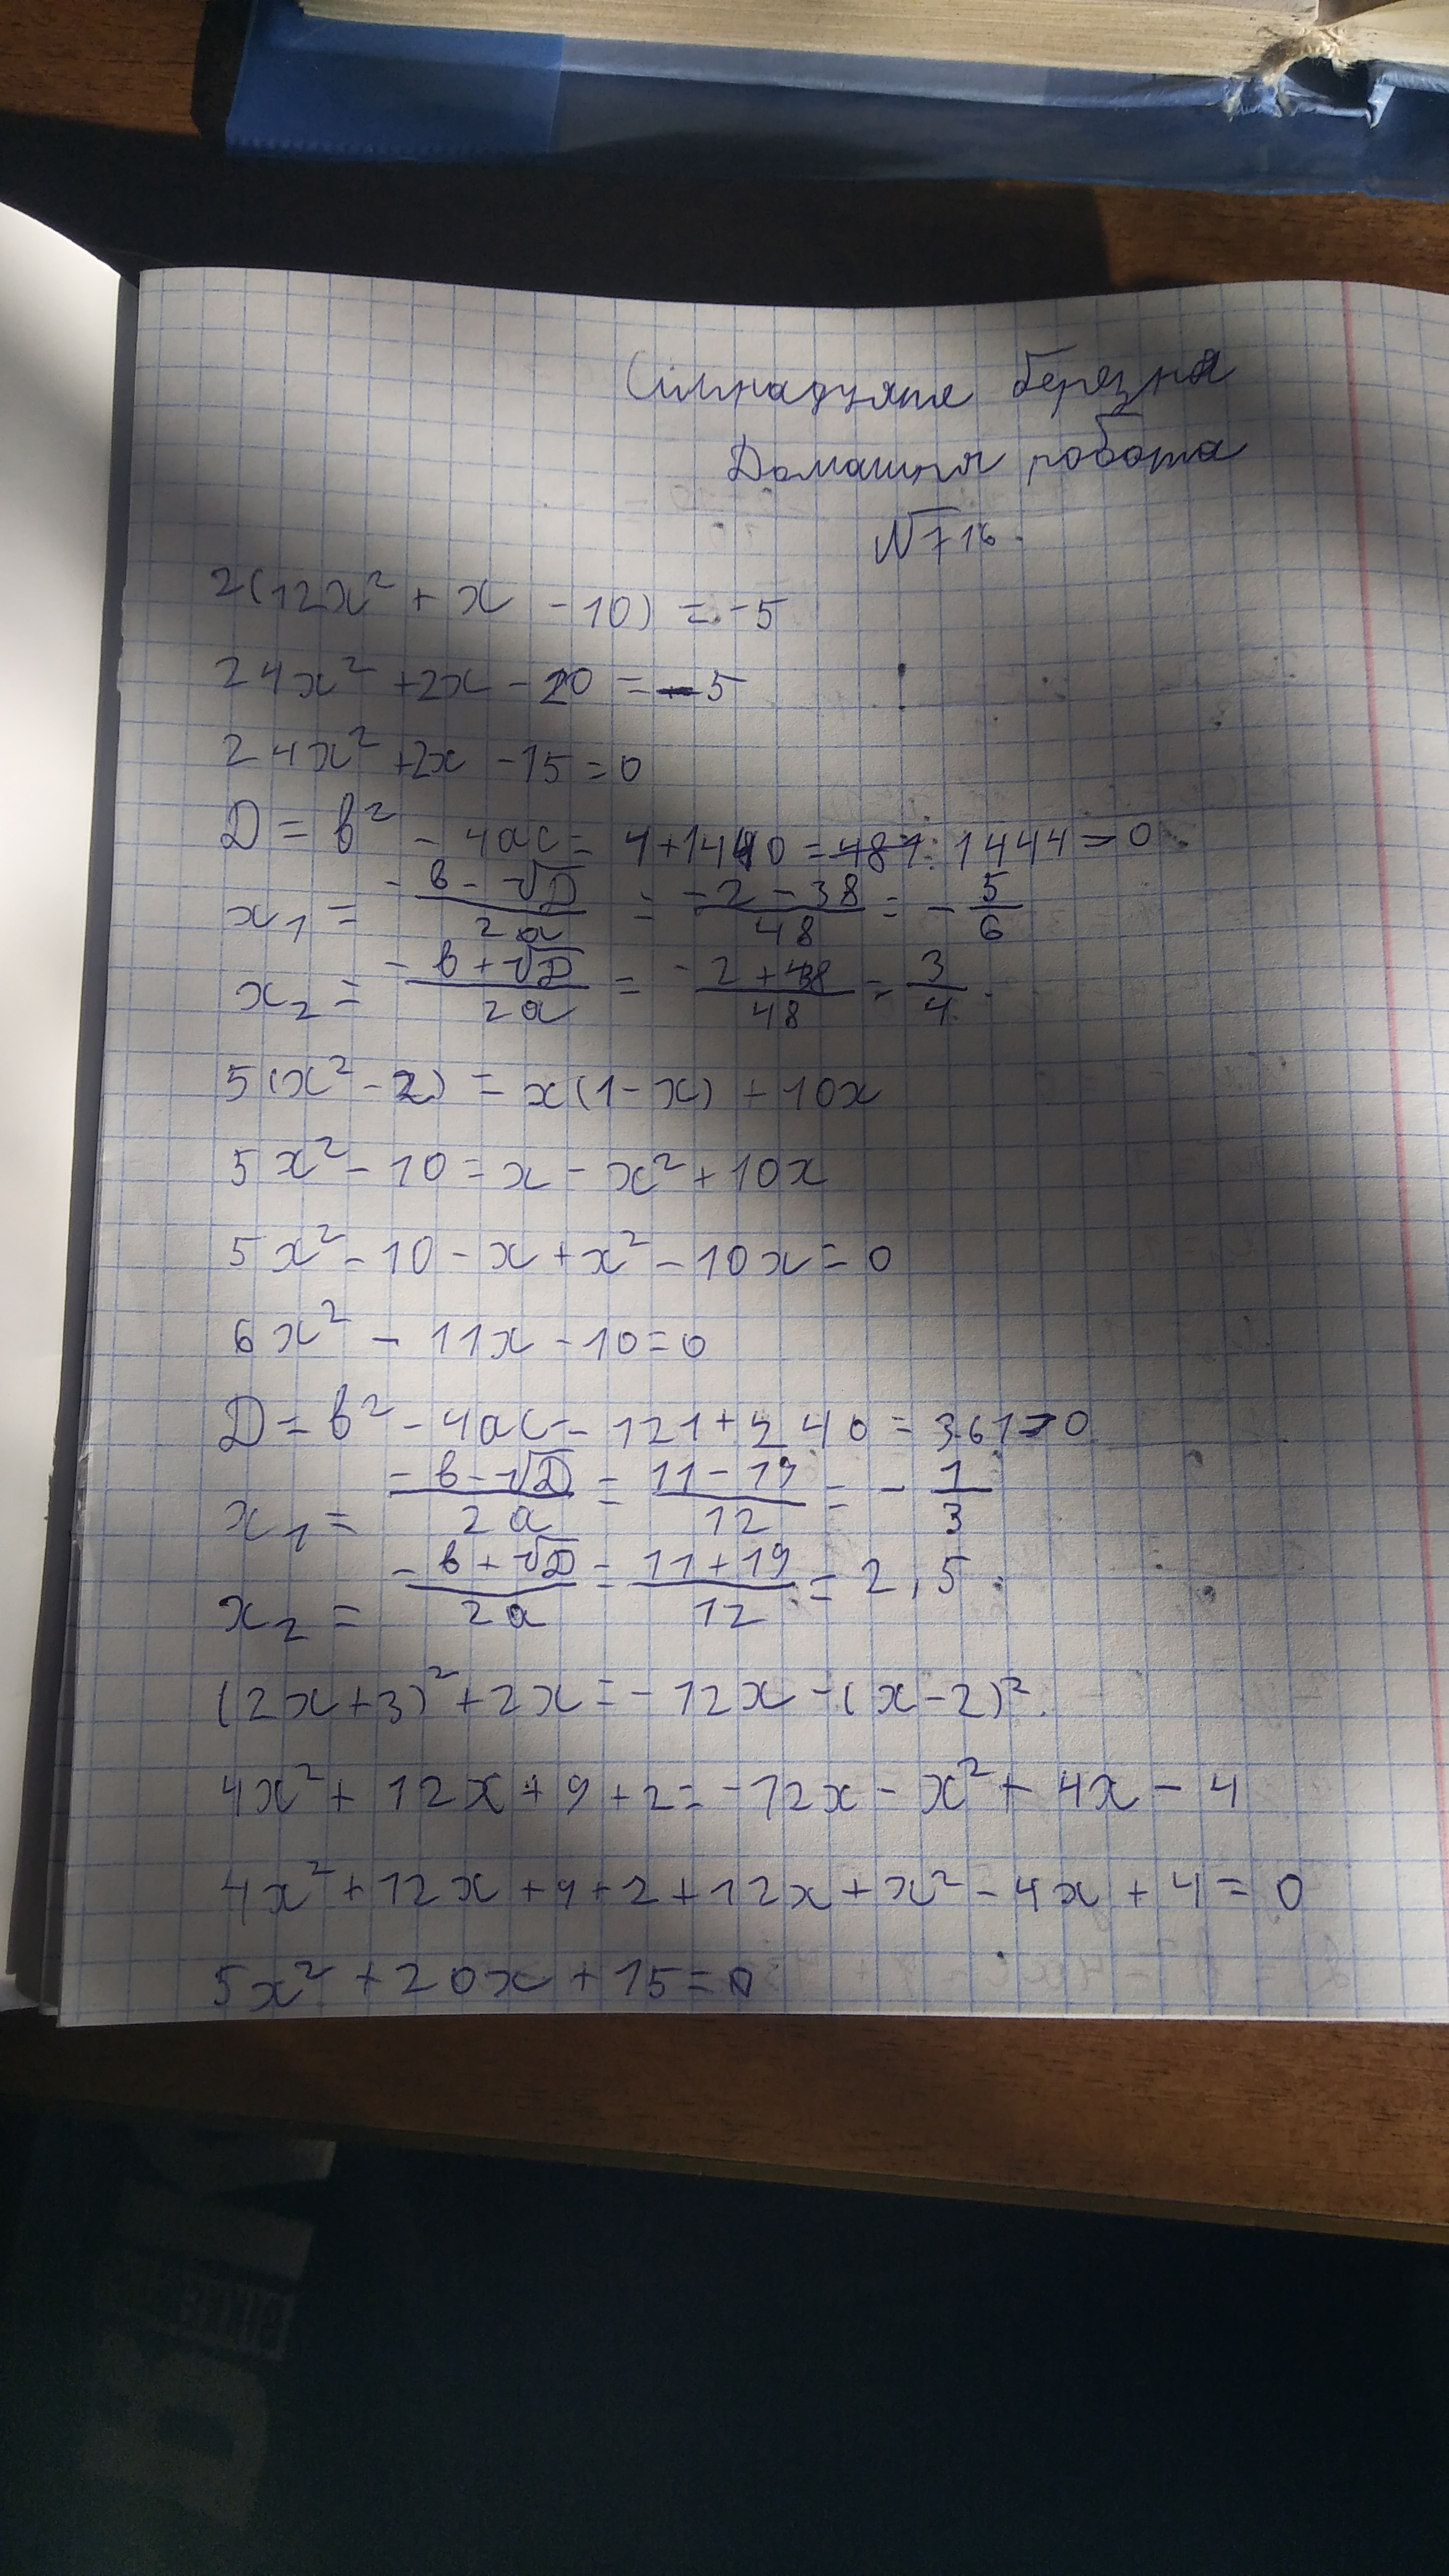 Сімнадцяте березня
Домашня робота
№716.
2(12x² + x - 10) = -5
24x² + 2x - 20 = -5
24x² + 2x - 15 = 0
D = b² - 4ac = 4 + 1440 = 484 1444 > 0
x₁ = (-b - √D)/(2a) = (-2 - 38)/48 = -5/6
x₂ = (-b + √D)/(2a) = (-2 + 38)/48 = 3/4.
5(x² - 2) = x(1 - x) + 10x
5x² - 10 = x - x² + 10x
5x² - 10 - x + x² - 10x = 0
6x² - 11x - 10 = 0
D = b² - 4ac = 121 + 240 = 361 > 0
x₁ = (-b - √D)/(2a) = (11 - 19)/12 = -1/3
x₂ = (-b + √D)/(2a) = (11 + 19)/12 = 2,5.
(2x + 3)² + 2x = -12x - (x - 2)².
4x² + 12x + 9 + 2 = -12x - x² + 4x - 4
4x² + 12x + 9 + 2 + 12x + x² - 4x + 4 = 0
5x² + 20x + 15 = 0